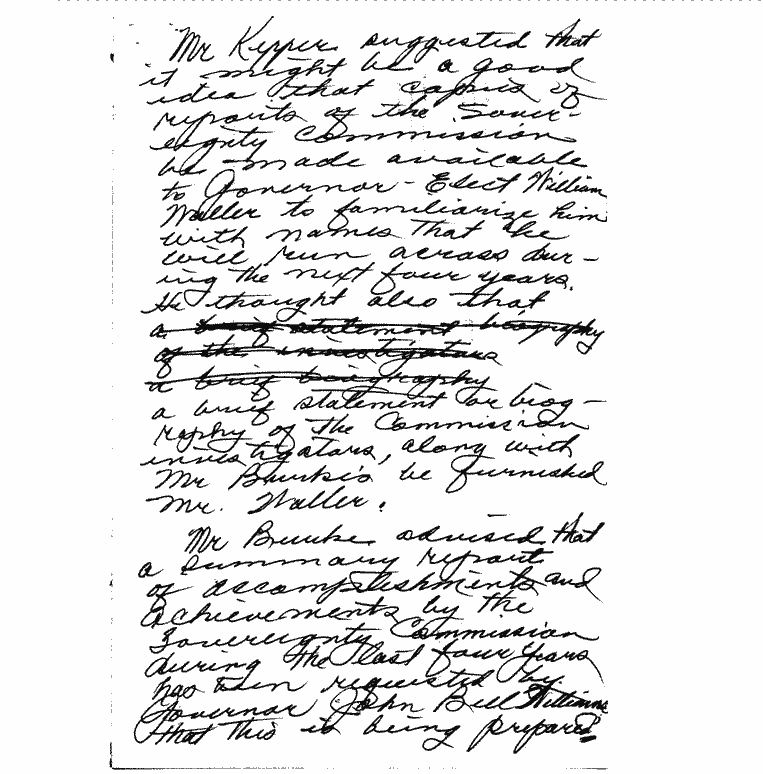 Mr Keyper suggested that
it might be a good
idea that copies of
reports of the Sover-
eignty Commission
be made available
to Governor-Elect William
Waller to familiarize him
with names that he
will run across dur-
ing the next four years.
He thought also that
a brief statement biography
of the investigators
a brief biography
a brief statement or biog-
raphy of the Commission
investigators, along with
Mr Burke's be furnished
Mr. Waller.
Mr Burke advised that
a summary report
of accomplishments and
achievements by the
Sovereignty Commission
during the last four years
has been requested by
Governor John Bell Williams
that this is being prepared